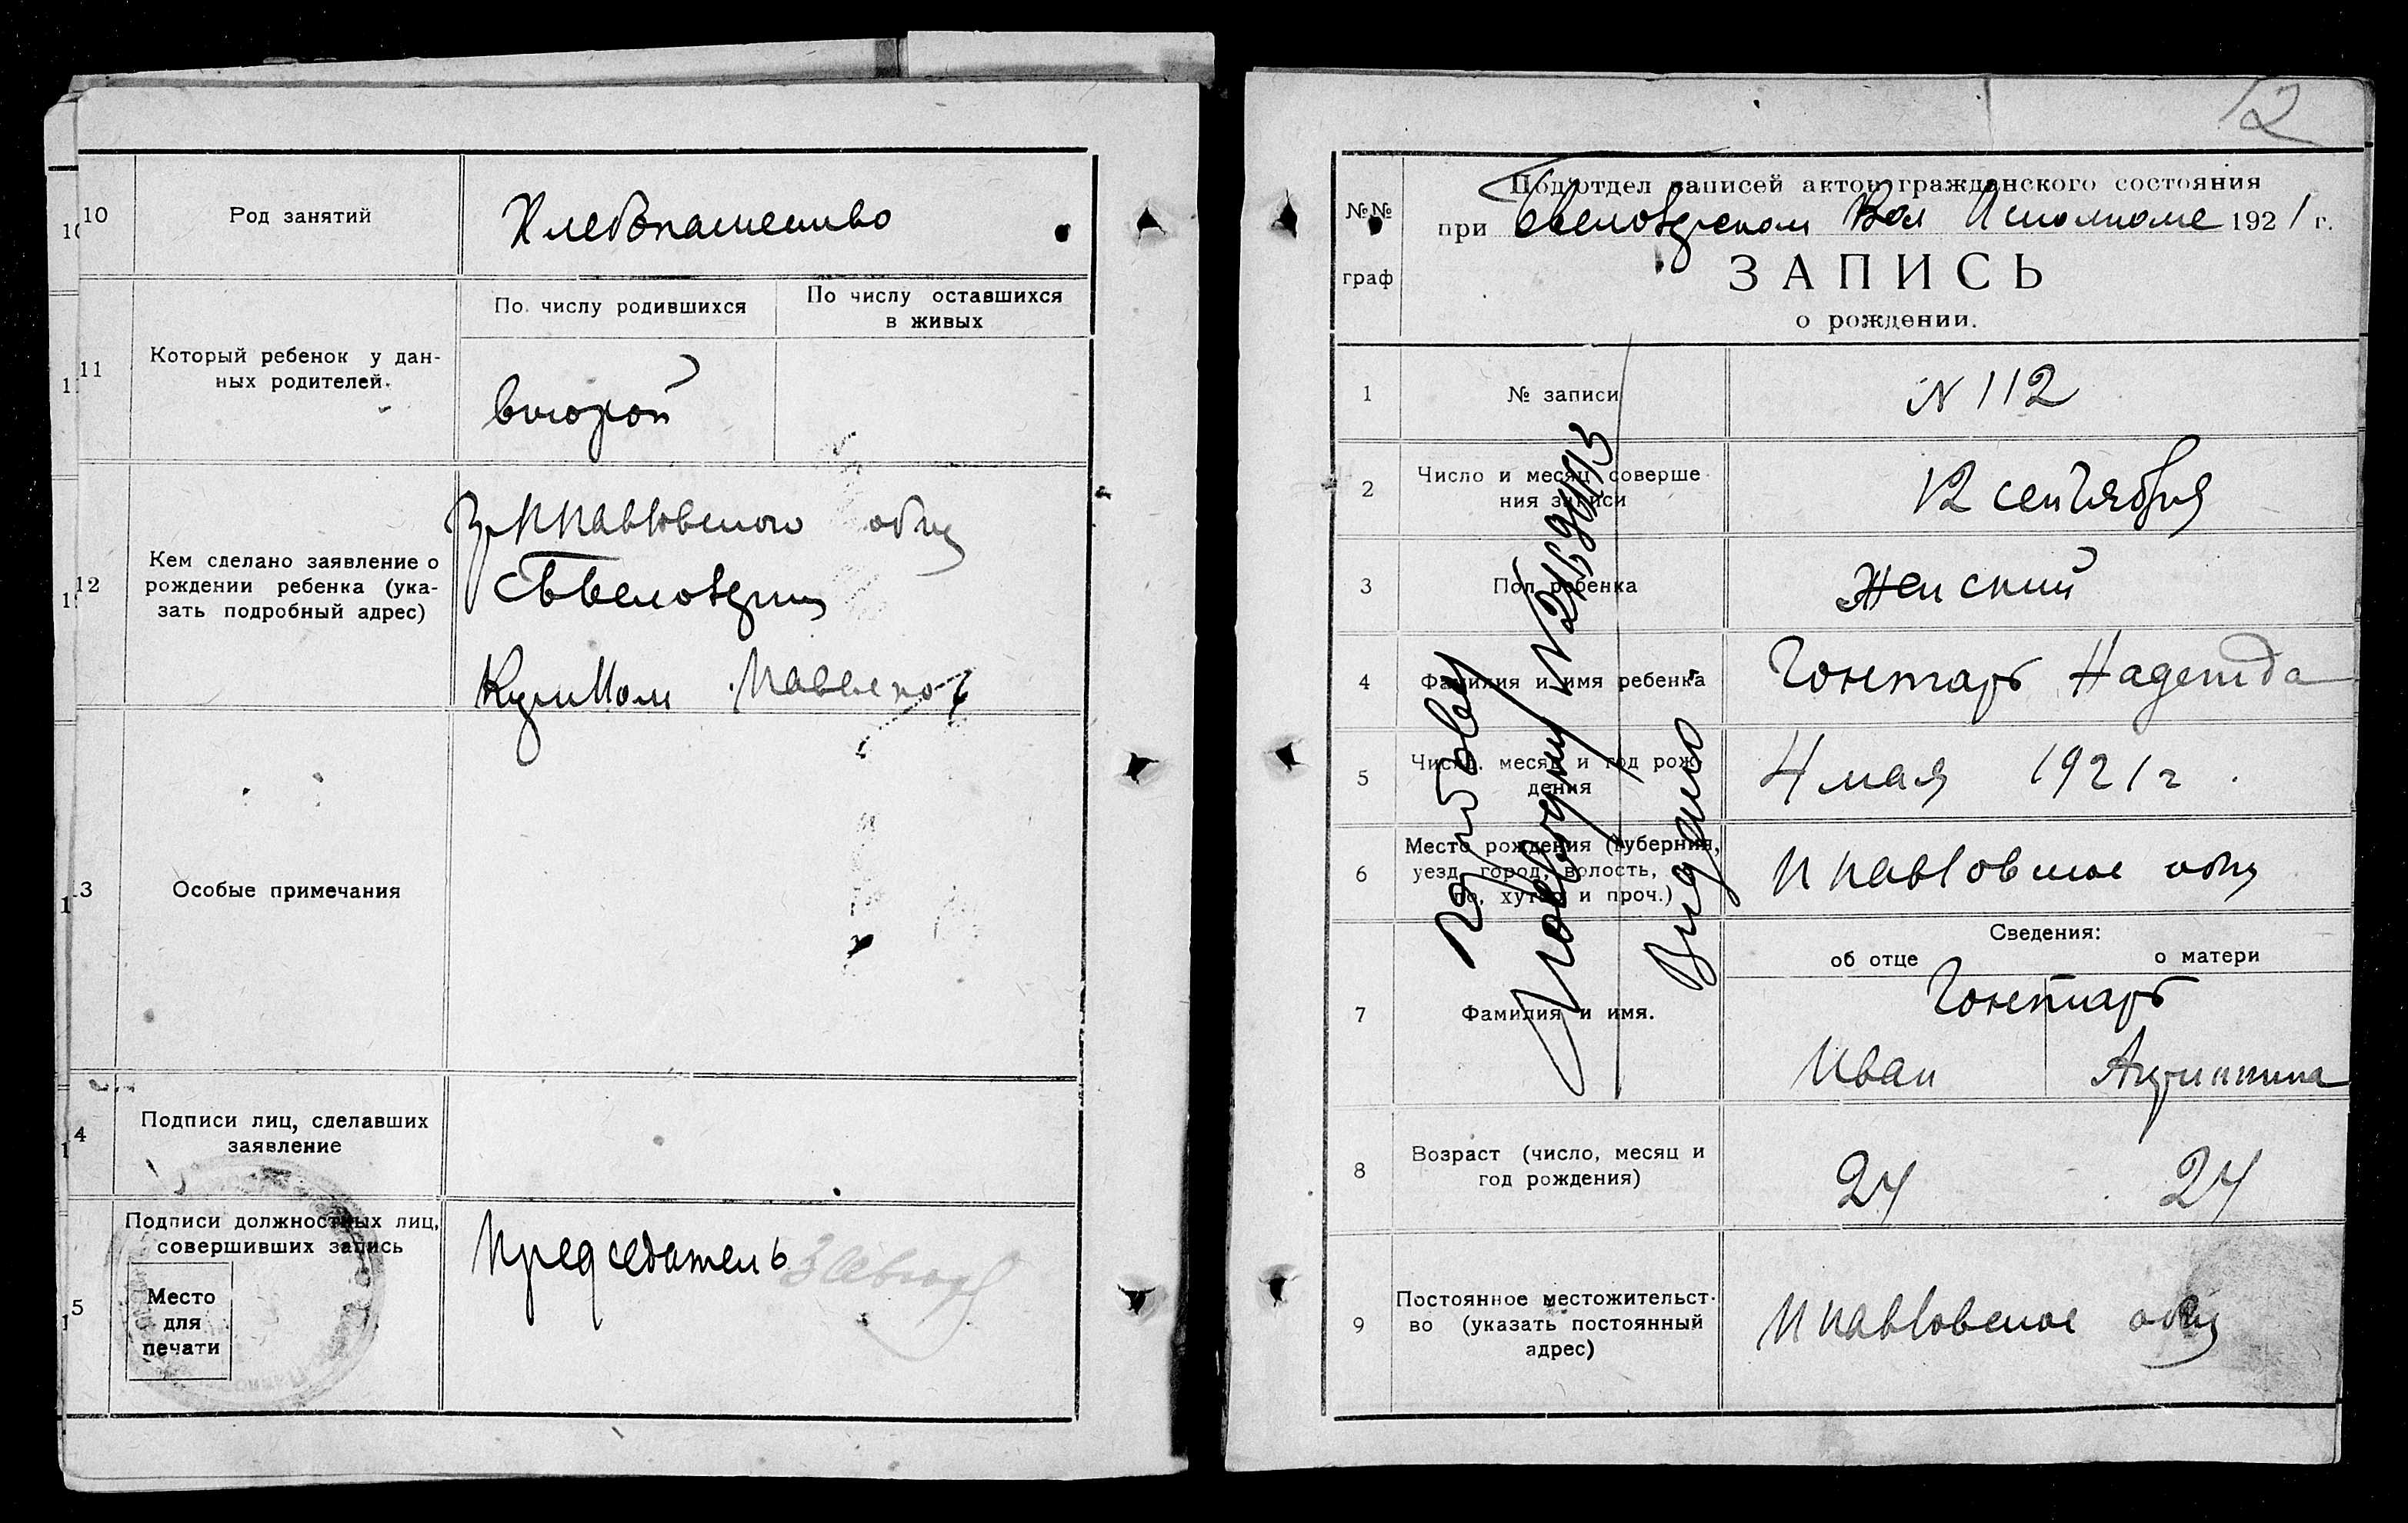 10
Род занятий
Хлебопашество
11
Который ребенок у дан-
ных родителей.
По числу родившихся
По числу оставшихся
в живых
второй
12
Кем сделано заявление о
рождении ребенка (ука-
зать подробный адрес)
общ
13
Особые примечания
14
Подписи лиц, сделавших
заявление
15
Подписи должностных лиц,
совершивших запись
Место
для
печати
Председатель
12
№№
граф
Под'отдел записей актов гражданского состояния
при Вол Исполкоме 1921 г.
ЗАПИСЬ
о рождении.
1
№ записи
N 112
2
Число и месяц соверше
ния записи
12 сентября
3
Пол ребенка
Женский
4
Фамилия и имя ребенка
Гонтарь Надежда
5
Число, месяц и год рож
дения
4 мая 1921 г.
6
Место рождения (губерния,
уезд, город, волость,
хутор и проч.)
Ипавловское общ
Сведения:
об отце
о матери
7
Фамилия и имя.
Гонтарь
Иван
8
Возраст (число, месяц и
год рождения)
24
24
9
Постоянное местожительст-
во (указать постоянный
адрес)
Ипавловское общ
Видано